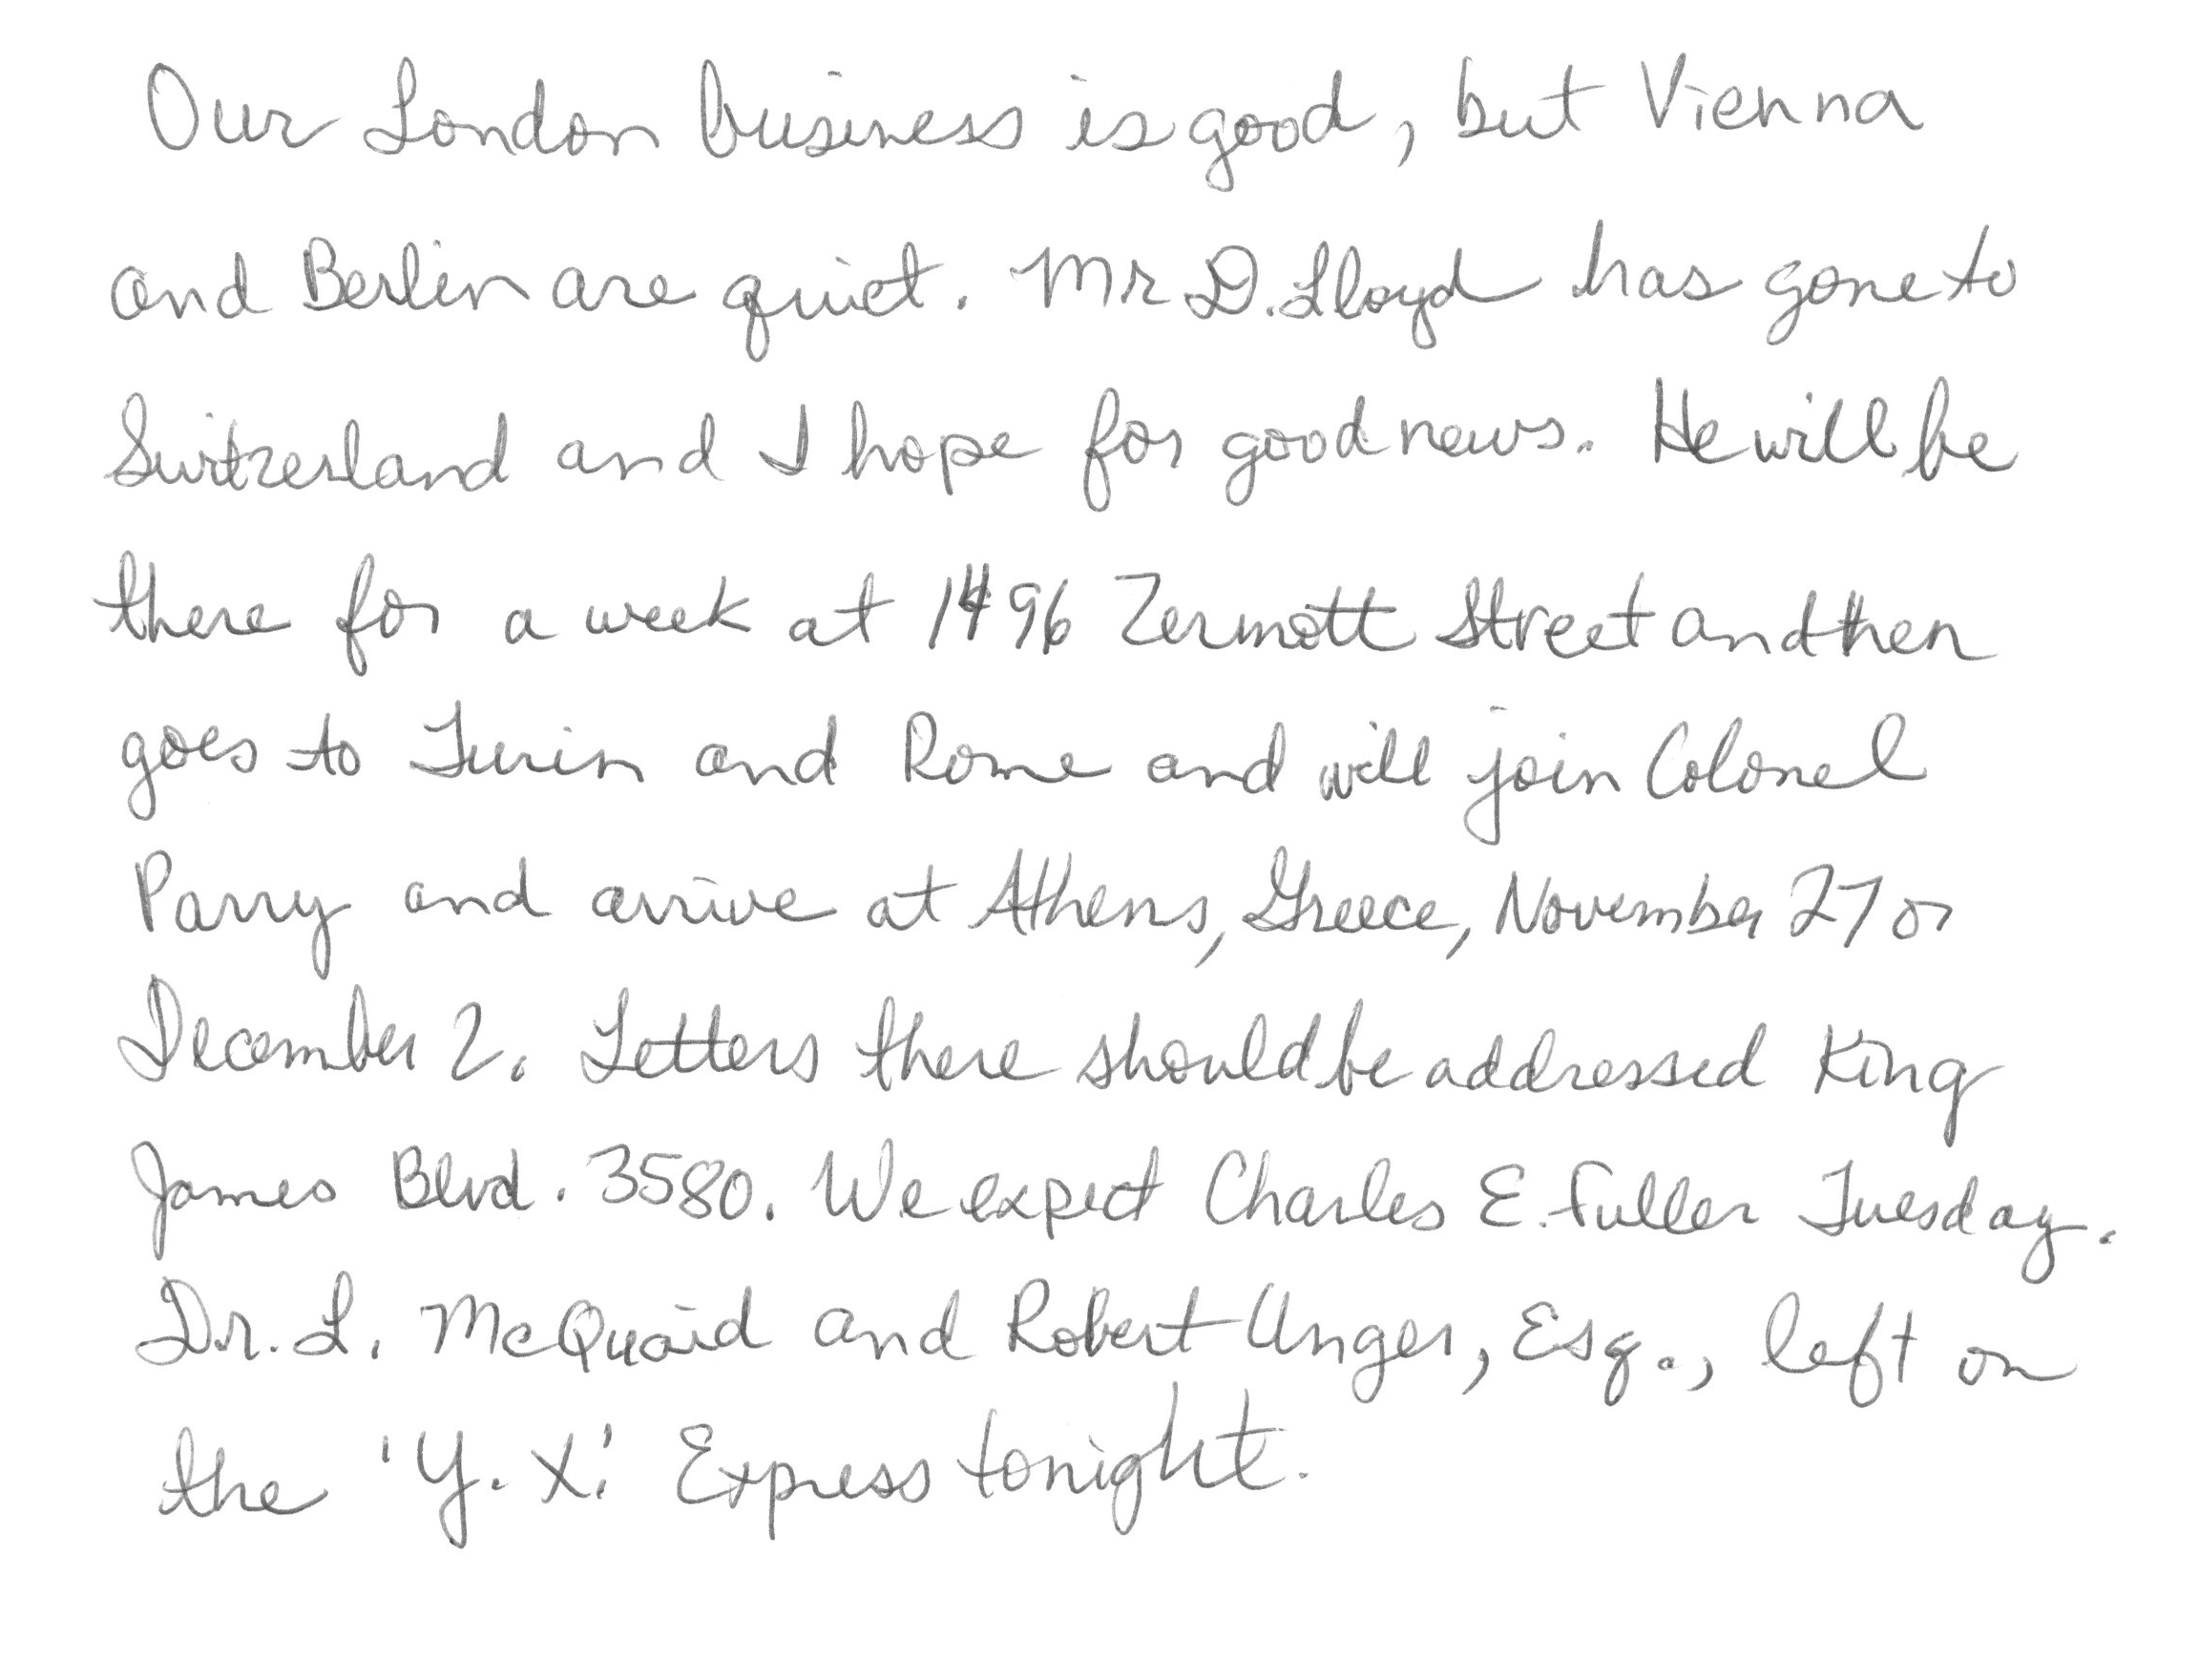 Our London business is good, but Vienna
and Berlin are quiet. Mr D. Lloyd has gone to
Switzerland and I hope for good news. He will be
there for a week at 1496 Zermott Street and then
goes to Turin and Rome and will join Colonel
Parry and arrive at Athens, Greece, November 27 or
December 2. Letters there should be addressed King
James Blvd. 3580. We expect Charles E. Fuller Tuesday.
Dr. L. McQuaid and Robert Unger, Esq., left on
the 'Y. X.' Express tonight.